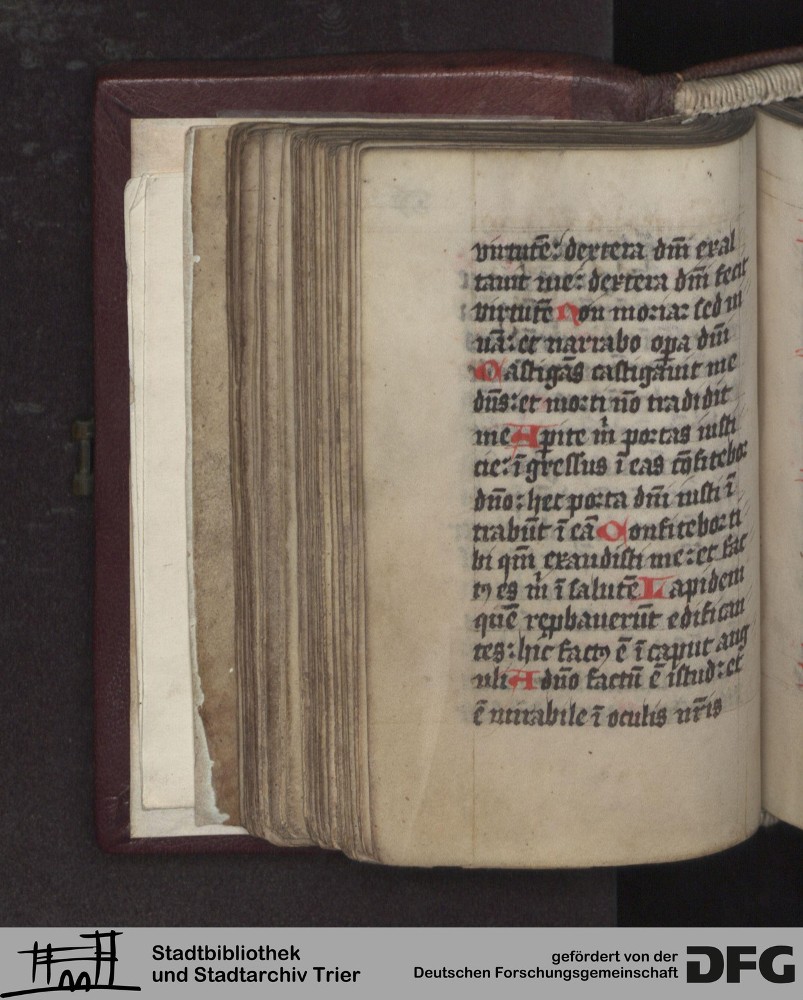 virtutē: dextera dn̄i exal
tauit me: dextera dn̄i fecit
virtutē Non moriar sed vi
uā: et narrabo oꝑa dn̄i
Castigās castigauit me
dn̄s: et morti nō tradidit
me Apite m̄ portas iusti
cie: īgressus ī eas cōfitebor
dn̄o: hec porta dn̄i iusti ī
trabūt ī eā Confitebor ti
bi qm̄ exaudisti me: et fac
tꝯ es m̄ ī salutē Lapidem
quē reꝓbauerūt edifican
tes: hic factꝯ ē ī caput ang
uli A dn̄o factū ē istud: et
ē mirabile ī oculis nr̄is
Stadtbibliothek
und Stadtarchiv Trier
gefördert von der
Deutschen Forschungsgemeinschaft
DFG